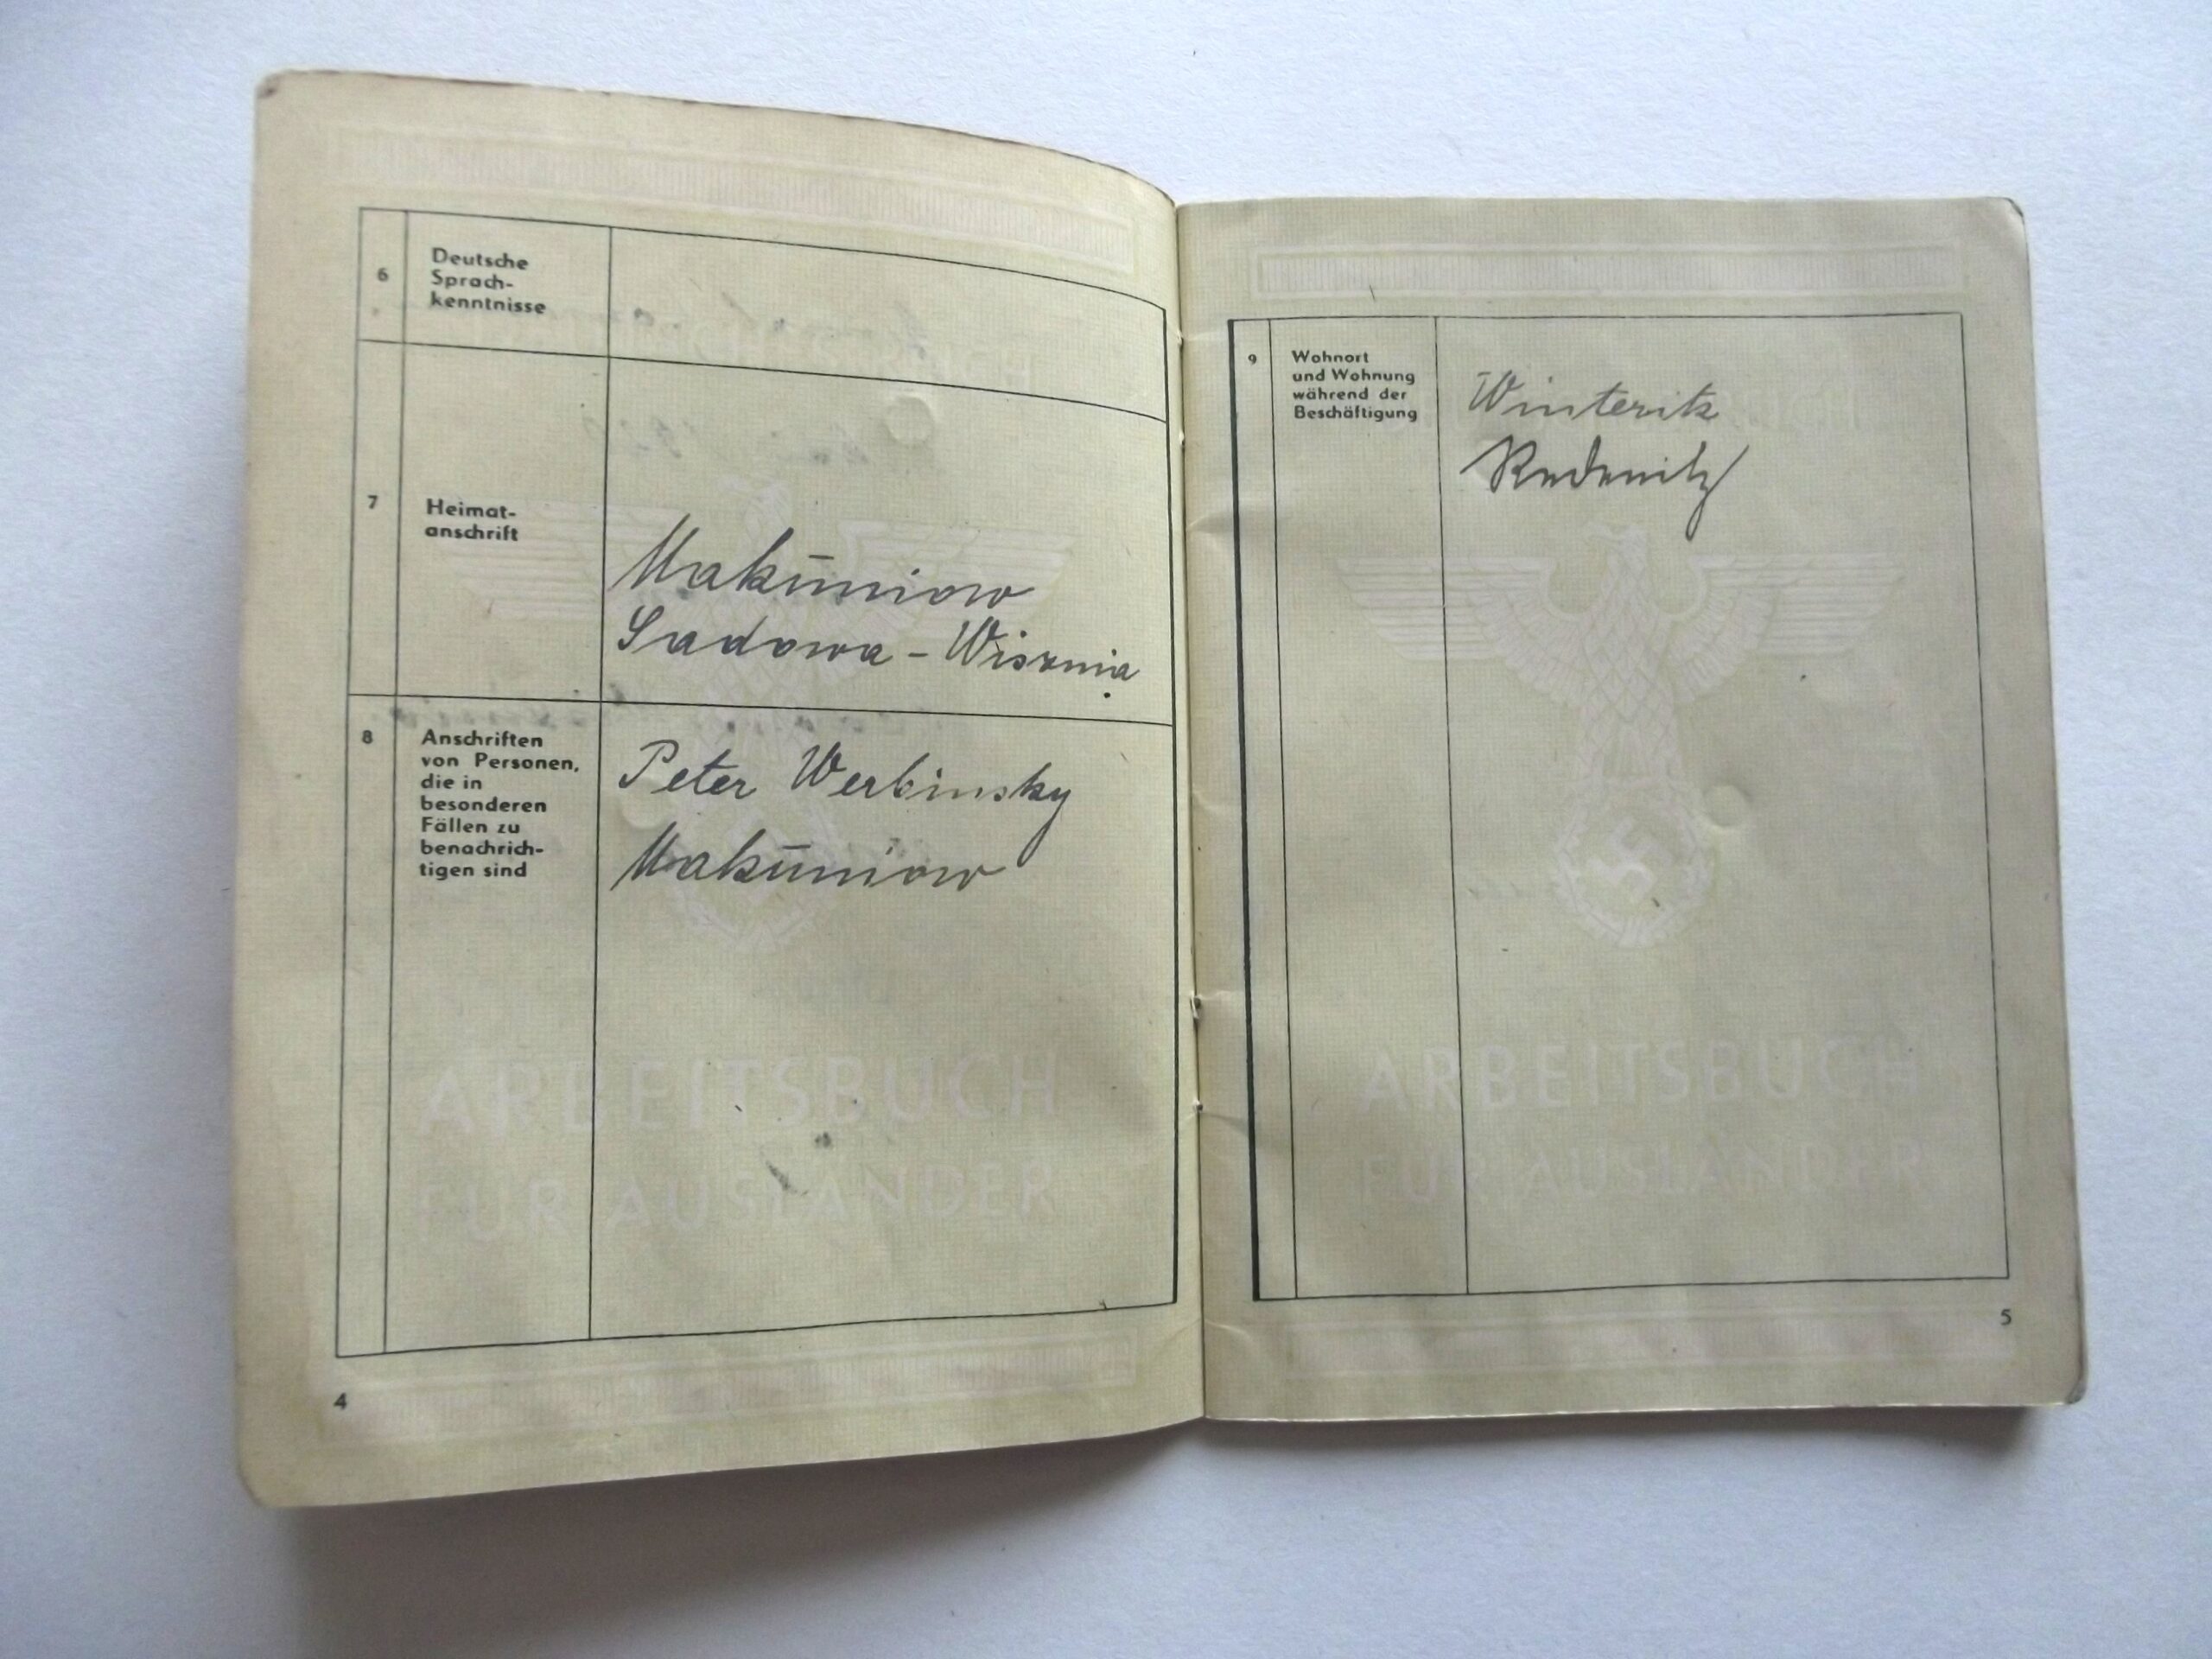 6
Deutsche
Sprach-
kenntnisse
7
Heimat-
anschrift
Makūniow
Sadowa - Wisznia
8
Anschriften
von Personen,
die in
besonderen
Fällen zu
benachrich-
tigen sind
Peter Werbinsky
Makūniow
ARBEITSBUCH
FÜR AUSLÄNDER
4
9
Wohnort
und Wohnung
während der
Beschäftigung
Winteritz
ARBEITSBUCH
FÜR AUSLÄNDER
5